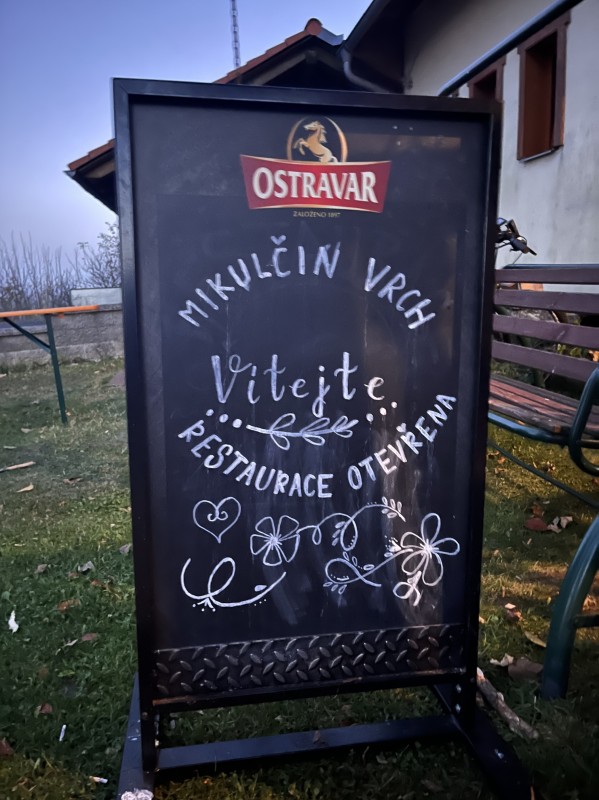 OSTRAVAR
ZALOŽENO 1897
MIKULČIN VRCH
Vítejte
RESTAURACE OTEVŘENA